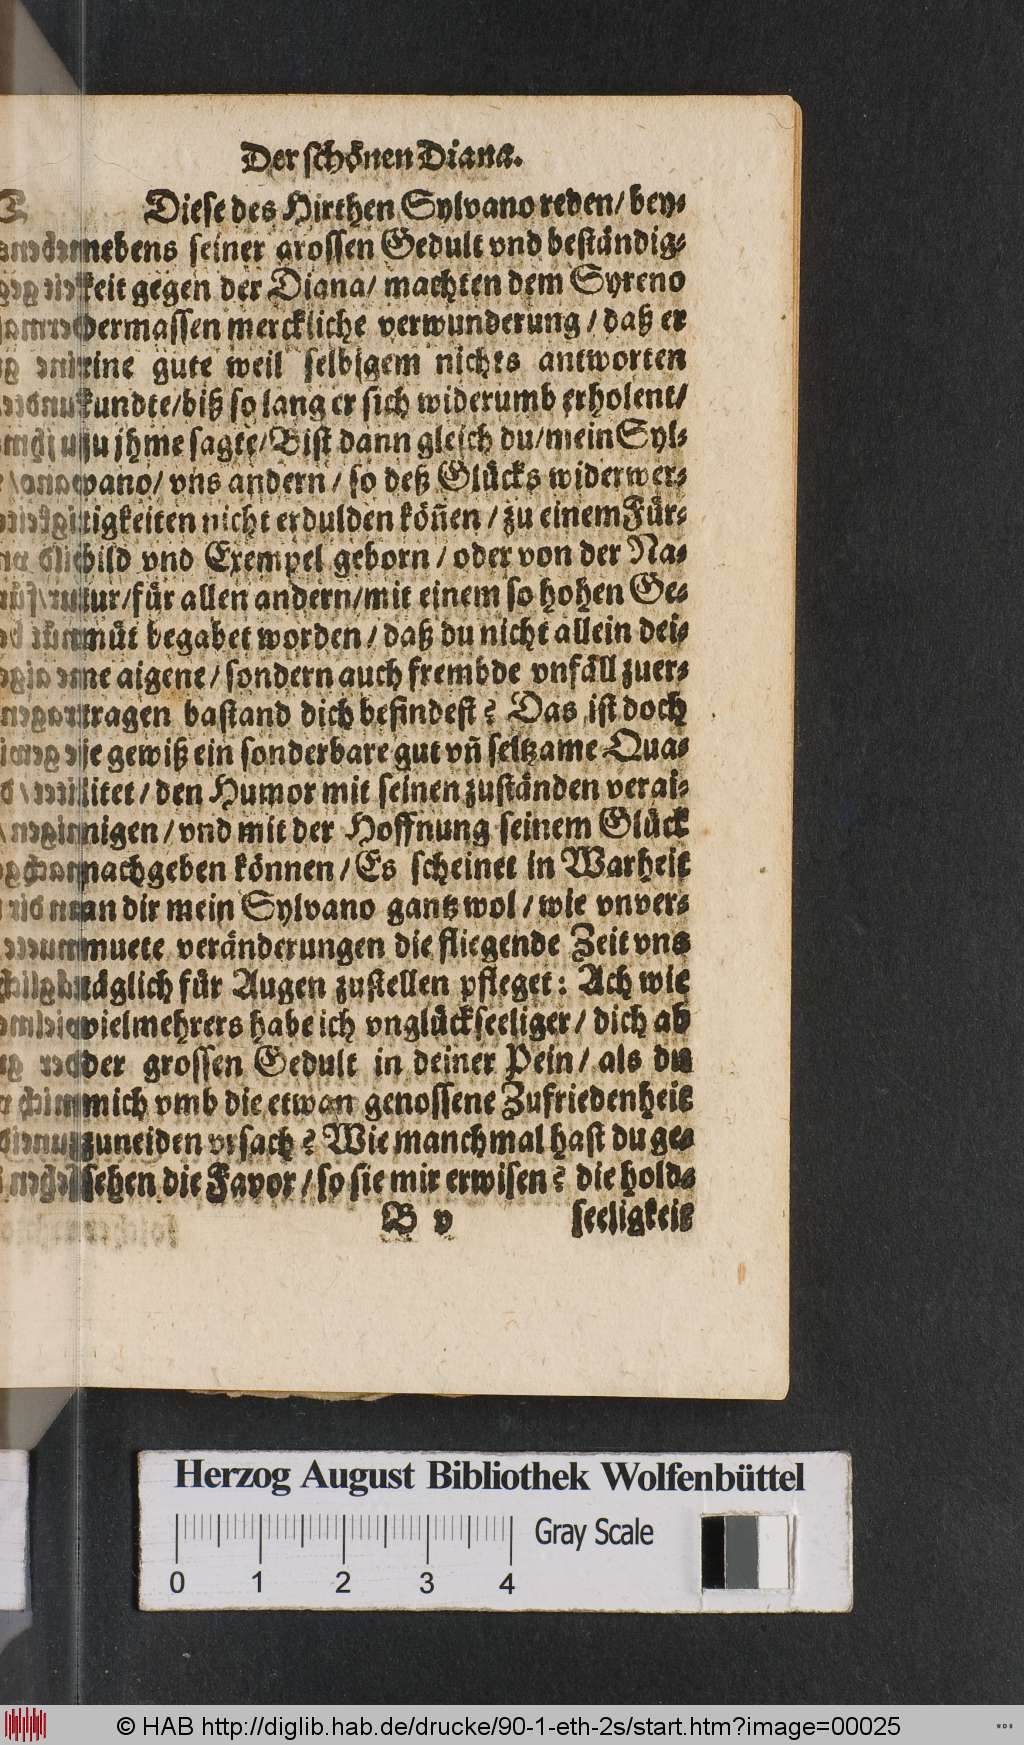 Der schönen Diana.
Diese des Hirthen Sylvano reden/ bey-
nebens seiner grossen Gedult vnd beständig-
keit gegen der Diana/ machten dem Syreno
dermassen merckliche verwunderung/ daß er
eine gute weil selbigem nichts antworten
kundte/biß so lang er sich widerumb erholent/
zu jhme sagte/Bist dann gleich du/mein Syl-
vano/ vns andern/ so deß Glücks widerwer-
tigkeiten nicht erdulden köñen/ zu einem Für-
bild vnd Exempel geborn/ oder von der Na-
tur/für allen andern/mit einem so hohen Ge-
müt begabet worden/ daß du nicht allein dei-
ne aigene/ sondern auch frembde vnfäll zuer-
tragen bastand dich befindest? Das ist doch
je gewiß ein sonderbare gut vñ seltzame Qua-
litet/ den Humor mit seinen zuständen verai-
nigen/ vnd mit der Hoffnung seinem Glück
nachgeben können/ Es scheinet in Warheit
an dir mein Sylvano gantz wol/ wie vnver-
muete veränderungen die fliegende Zeit vns
täglich für Augen zustellen pfleget: Ach wie
vielmehrers habe ich vnglückseeliger/ dich ab
der grossen Gedult in deiner Pein/ als du
mich vmb die etwan genossene Zufriedenheit
zuneiden vrsach? Wie manchmal hast du ge-
sehen die Favor/ so sie mir erwisen? die hold-
B v seeligkeit
Herzog August Bibliothek Wolfenbüttel
Gray Scale
0 1 2 3 4
© HAB http://diglib.hab.de/drucke/90-1-eth-2s/start.htm?image=00025